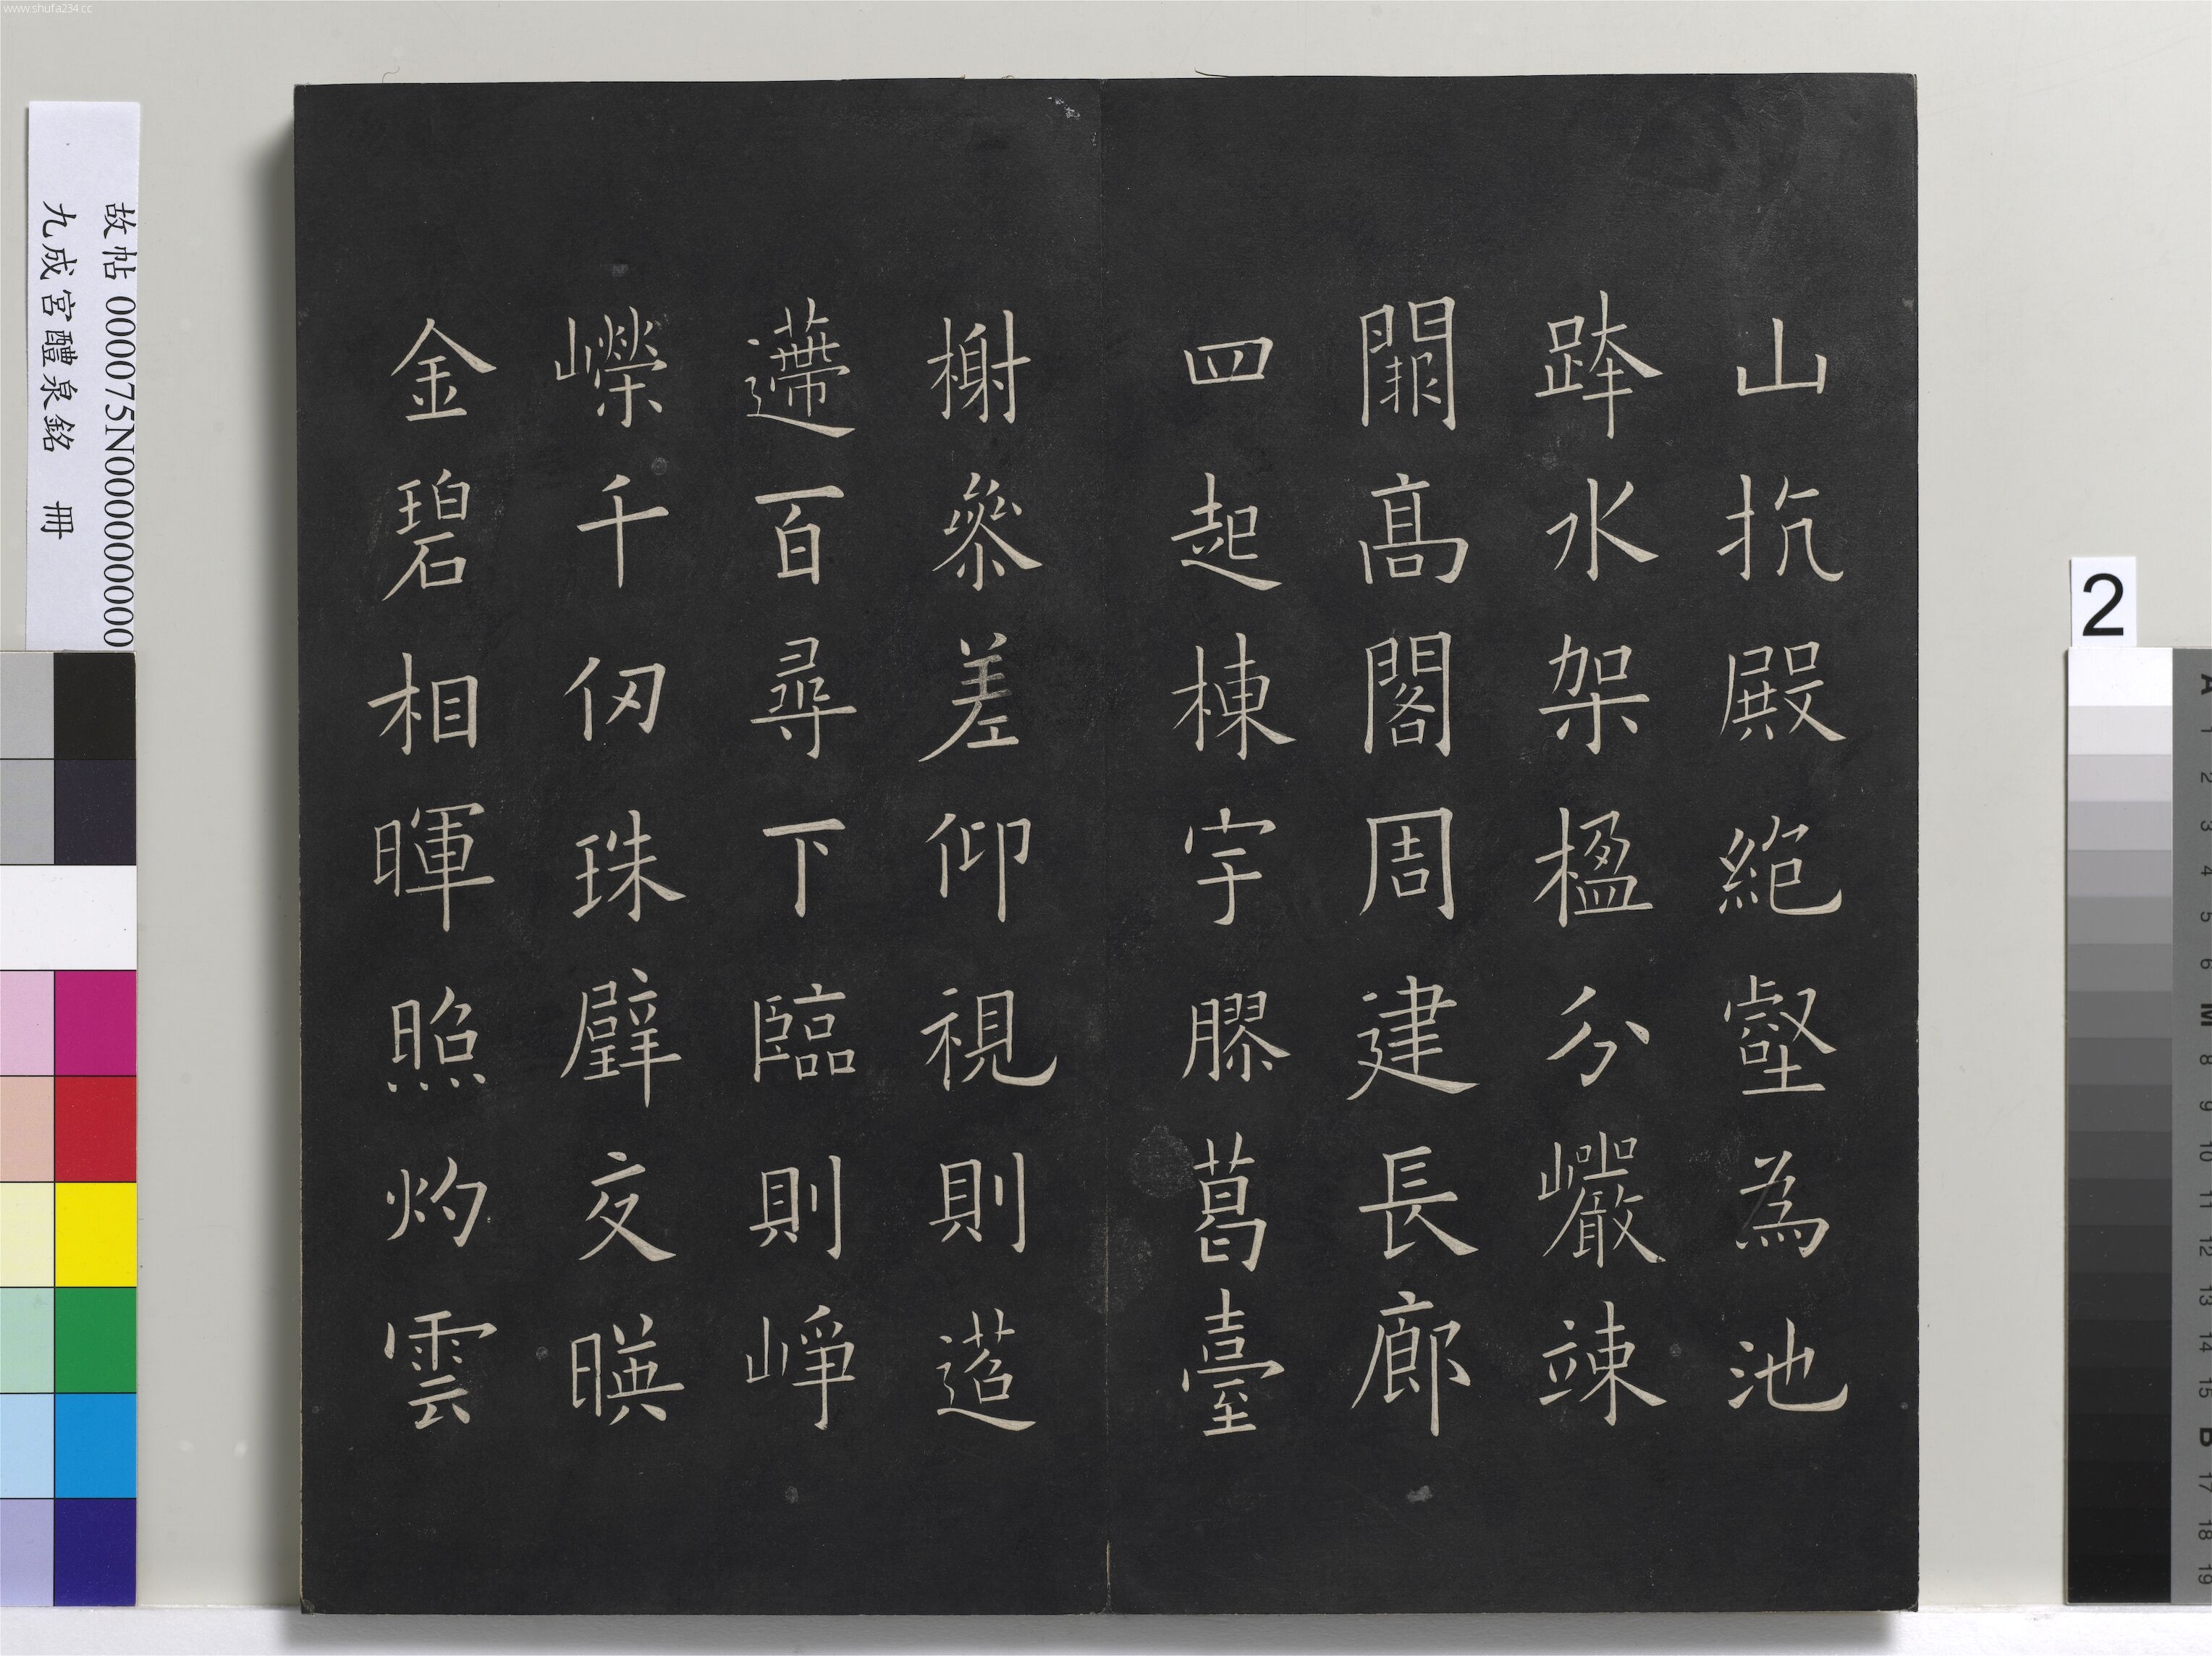 山抗殿絶壑為池
跨水架楹分巖竦
闕高閣周建長廊
四起棟宇膠葛臺
榭參差仰視則迢
遰百尋下臨則崢
嶸千仞珠璧交暎
金碧相暉照灼雲
故帖 000075N000000000
九成宮醴泉銘 冊
2
www.shufa234.cc
A 1 2 3 4 5 6 M 8 9 10 11 12 13 14 15 B 17 18 19